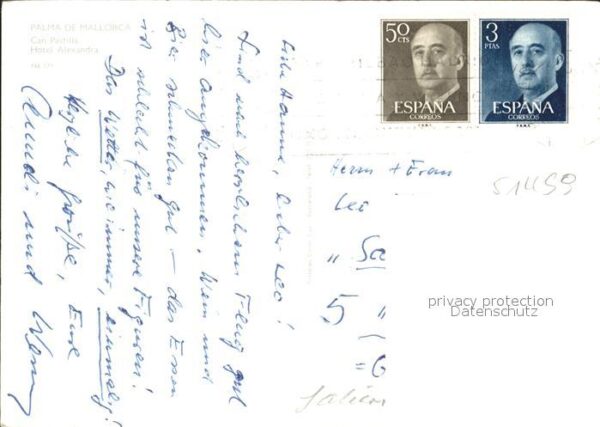 PALMA DE MALLORCA
Can Pastilla
Hotel Alexandra
Liebe Hanne, lieber Leo!
Sind nach herrlichem Flug gut
hier angekommen. Wein und
Bier schmecken gut – das Essen
ist schlecht für unsere Figuren!
Das Wetter, wie immer, einmalig!
Herzliche Grüße, Eure
und
50
CTS
ESPAÑA
CORREOS
3
PTAS
ESPAÑA
CORREOS
Herrn + Frau
Leo
" Sa
5 "
= G
51499
privacy protection
Datenschutz